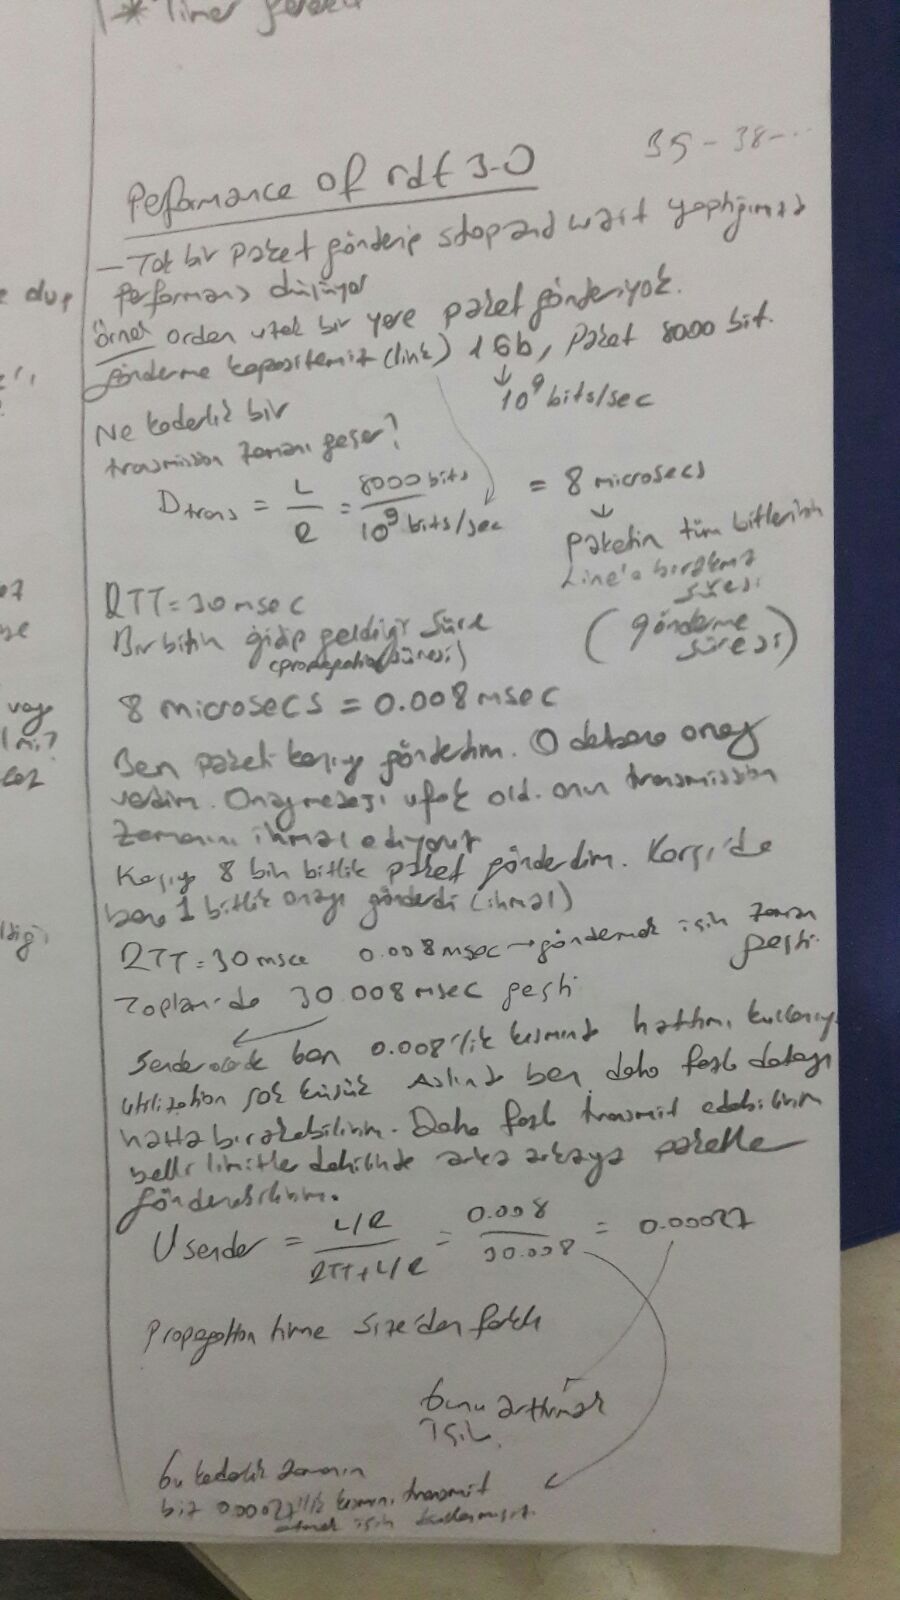 * Timer gerekli
35 - 38 - ...
Peformance of rdt 3.0
- Tek bir paket gönderip stop and wait yaptığımızda
performans düşüyor
örnek orden uzak bir yere paket gönderiyok.
gönderme kapasitemiz (link) 1 Gb, paket 8000 bit.
10^9 bits/sec
Ne kaderlik bir
transmission zamanı geçer?
D trans = L/R = 8000 bits / 10^9 bits/sec = 8 microsecs
paketin tüm bitlerinin
Line'a bırakma
süresi
(gönderme
süresi)
RTT = 30 msec
Bir bitin gidip geldiği süre
(propagation süresi)
8 microsecs = 0.008 msec
Ben paketi karşıya gönderdim. O da bana onay
verdim. Onay mesajı ufak old. onun transmission
zamanını ihmal ediyoruz
Karşıya 8 bin bitlik paket gönderdim. Karşı'da
bana 1 bitlik onayı gönderdi (ihmal)
RTT = 30 msec 0.008 msec → göndermek için zaman
geçti.
Toplam'da 30.008 msec geçti
Sender olarak ben 0.008'lik kısmında hattımı
utilization çok küçük Aslında ben daha fazla datayı
hatta bırakabilirim. Daha fazla transmit edebilirim
belli limitler dahilinde arka arkaya paketle
gönderebilirim.
U sender = L/R / RTT + L/R = 0.008 / 30.008 = 0.00027
Propagation time size'dan farklı
bunu arttırmak
için.
bu kadarlık zamanın
biz 0.00027'lik kısmını transmit
etmek için kullanmışız.